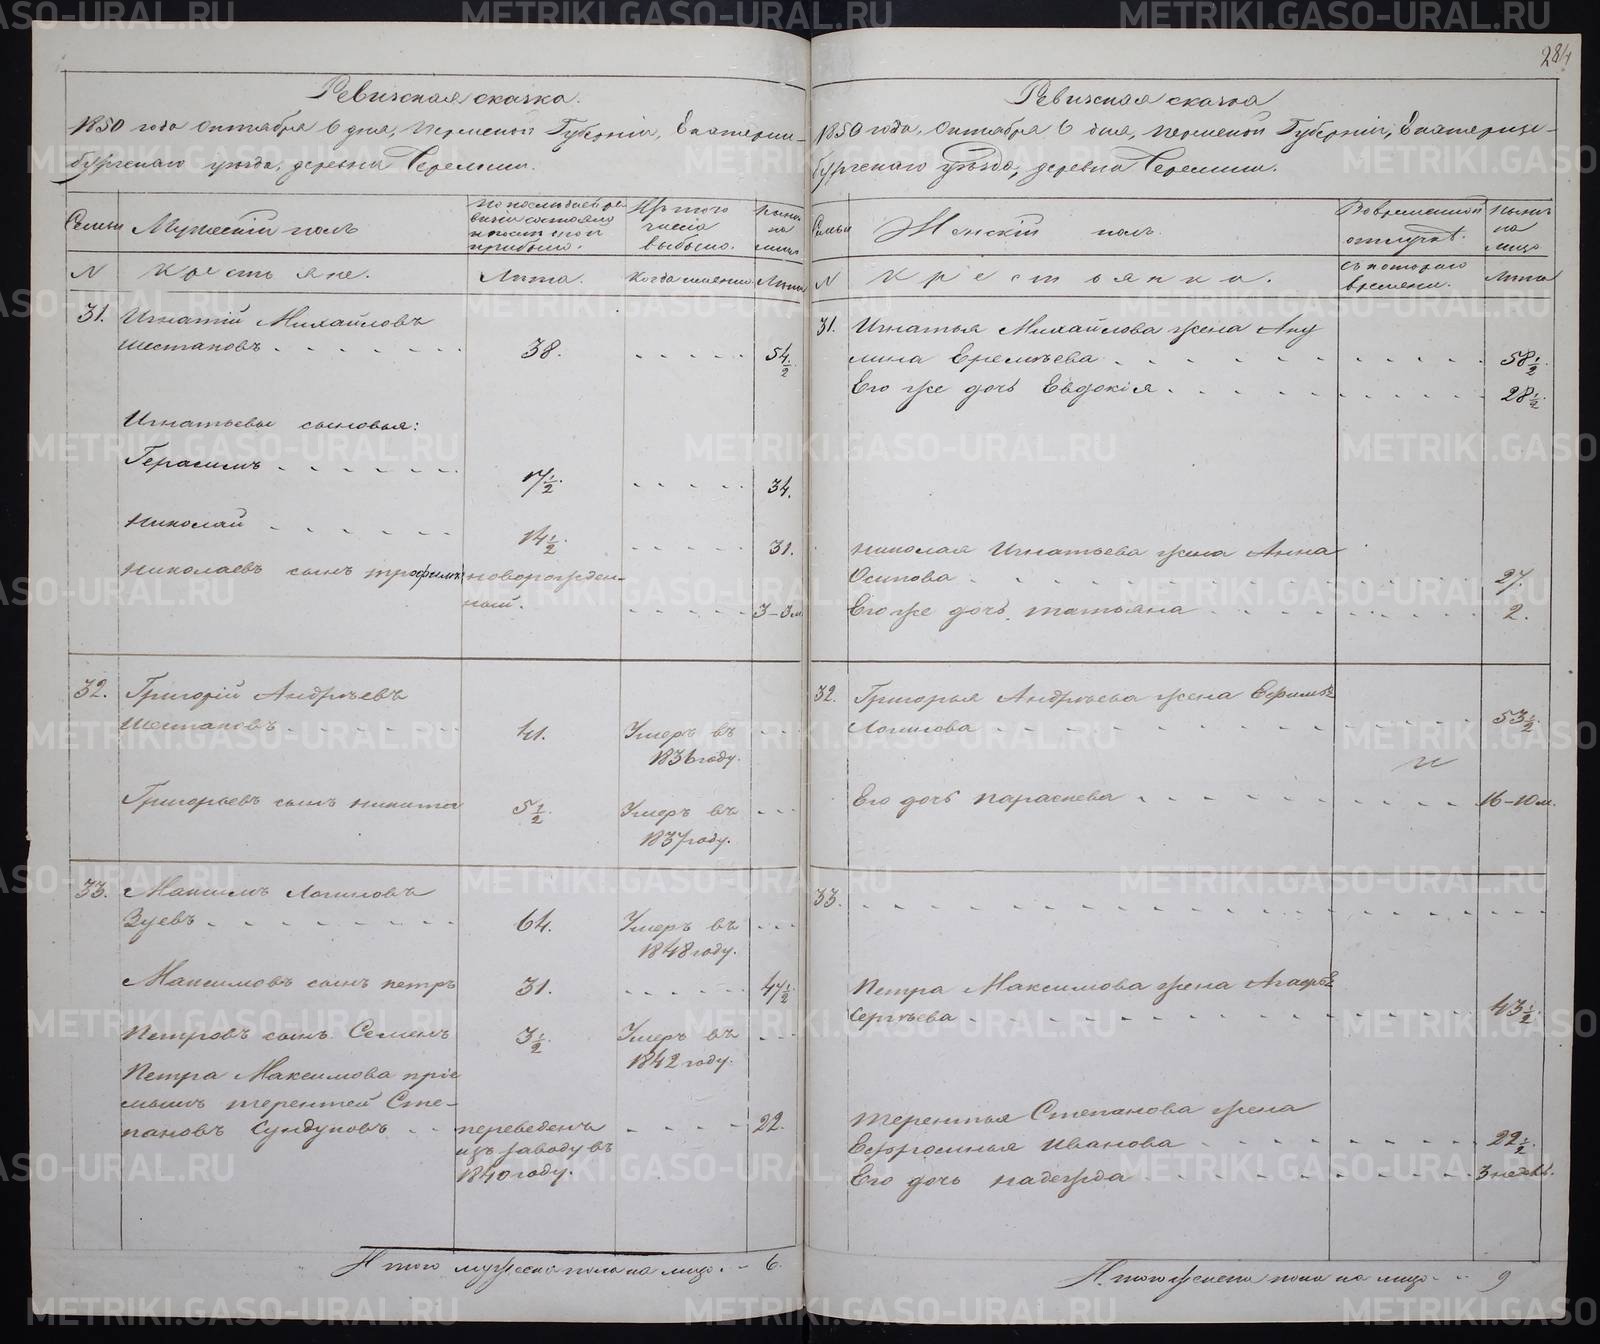 Ревизская сказка.
1850 года Октября 6 дня, Пермской Губерніи, Екатерин-
бургскаго уѣзда, деревни Черемши.
Семьи
Мужескій полъ
По послѣдней ре-
визіи состояло
и послѣ оной
прибыло.
Изъ того
числа
выбыло.
Нынѣ
на
лицо.
N
Крестьяне.
Лѣта.
Когда именно
Лѣта
31. Игнатій Михайловъ
Шестаковъ 38. 54 1/2
Игнатьевы сыновья:
Герасимъ 17 1/2. 34.
Николай 14 1/2. 31.
Николаевъ сынъ Трофимъ новорожден-
ный. 3-3 м.
32. Григорій Андрѣевъ
Шестаковъ 41. Умеръ въ
1836 году.
Григорьевъ сынъ Никита 5 1/2 Умеръ въ
1837 году.
33. Максимъ Логиновъ
Зуевъ 64. Умеръ въ
1848 году.
Максимовъ сынъ Петръ 31. 47 1/2.
Петровъ сынъ Семенъ 3 1/2. Умеръ въ
1842 году.
Петра Максимова пріе
мышъ Терентей Сте-
пановъ Сундуковъ переведенъ 22.
изъ заводу въ
1840 году.
Итого мужеска пола на лицо 6.
284
Ревизская сказка
1850 года, Октября 6 дня, Пермской Губерніи, Екатерин-
бургскаго уѣзда, деревни Черемши.
Семьи
Женскій полъ.
Во временной
отлучкѣ.
Нынѣ
на
лицо
N
Крестьянки.
Съ котораго
времени.
Лѣта
31. Игнатья Михайлова жена Аку
лина Еремѣева 58 1/2.
Его же дочь Евдокія 28 1/2.
Николая Игнатьева жена Анна
Осипова 27.
Его же дочь Татьяна 2.
32. Григорья Андрѣева жена Ефимья
Логинова 53 1/2.
Его дочь Параскева 16-10 м.
33.
Петра Максимова жена Агафья
Сергѣева 43 1/2.
Терентья Степанова жена
Ефросинья Иванова 22 1/2.
Его дочь Надежда 3 недѣл.
Итого женска пола на лицо 9
METRIKI.GASO-URAL.RU